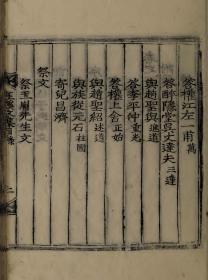 答權江左一甫萬
答醉隱堂吳大達夫三達
與趙聖與進道
答李平仲重光
答權上舍正始
與趙聖紹述道
與族從元石柱國
寄兒昌濟
祭文
祭玉川先生文
二